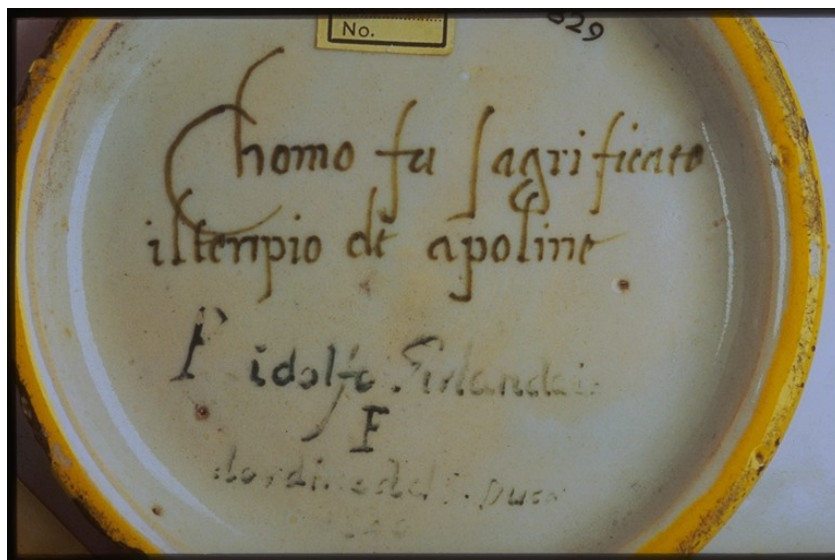 No.
329
Chomo fu sagrificato
il tenpio de apoline
Ridolfo Girlandaio
F